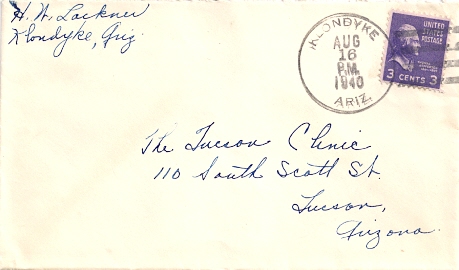 H. W. Lackner
Klondyke, Ariz.
KLONDYKE
AUG
16
P.M.
1940
ARIZ.
UNITED
STATES
POSTAGE
3 CENTS 3
The Tucson Clinic
110 South Scott St.
Tucson,
Arizona